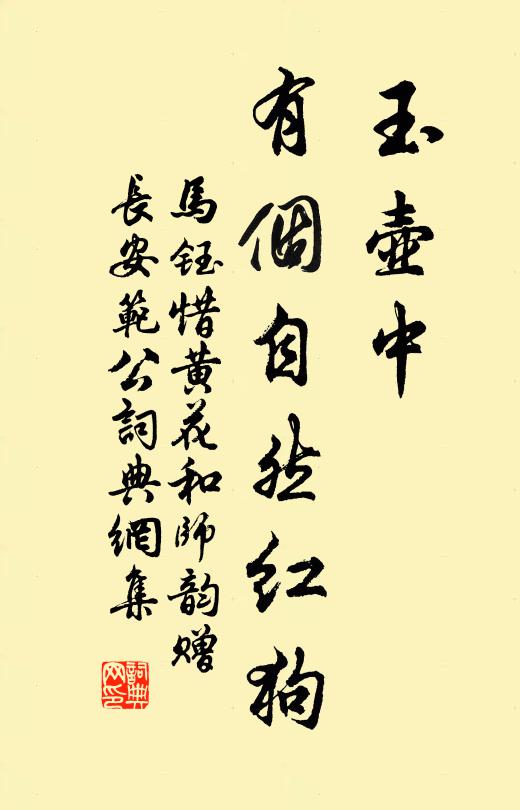 玉壺中
有個自然紅狗
馬鈺惜黃花和師韵贈
長安範公詞典網集
詞典
网印